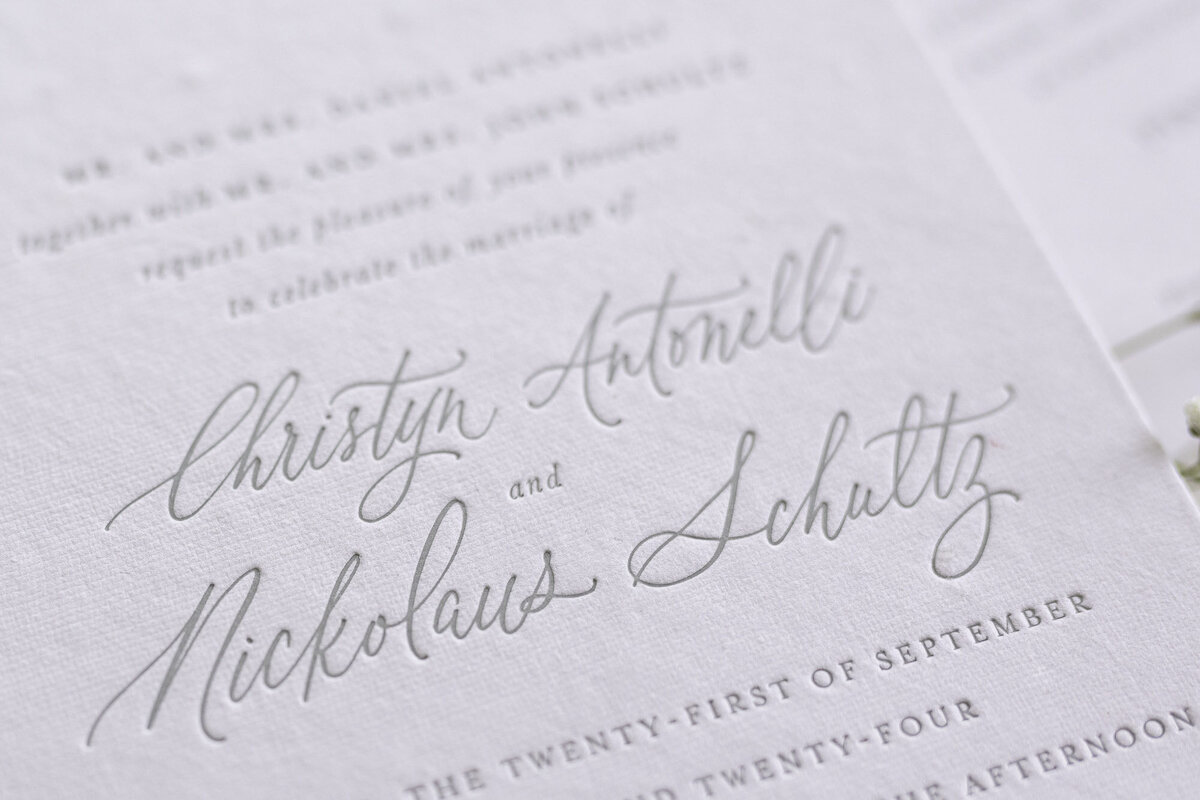 MR. AND MRS. DANIEL ANTONELLI
together with MR. AND MRS. JOHN SCHULTZ
request the pleasure of your presence
to celebrate the marriage of
Christyn Antonelli
and
Nickolaus Schultz
THE TWENTY-FIRST OF SEPTEMBER
TWENTY-FOUR
AFTERNOON